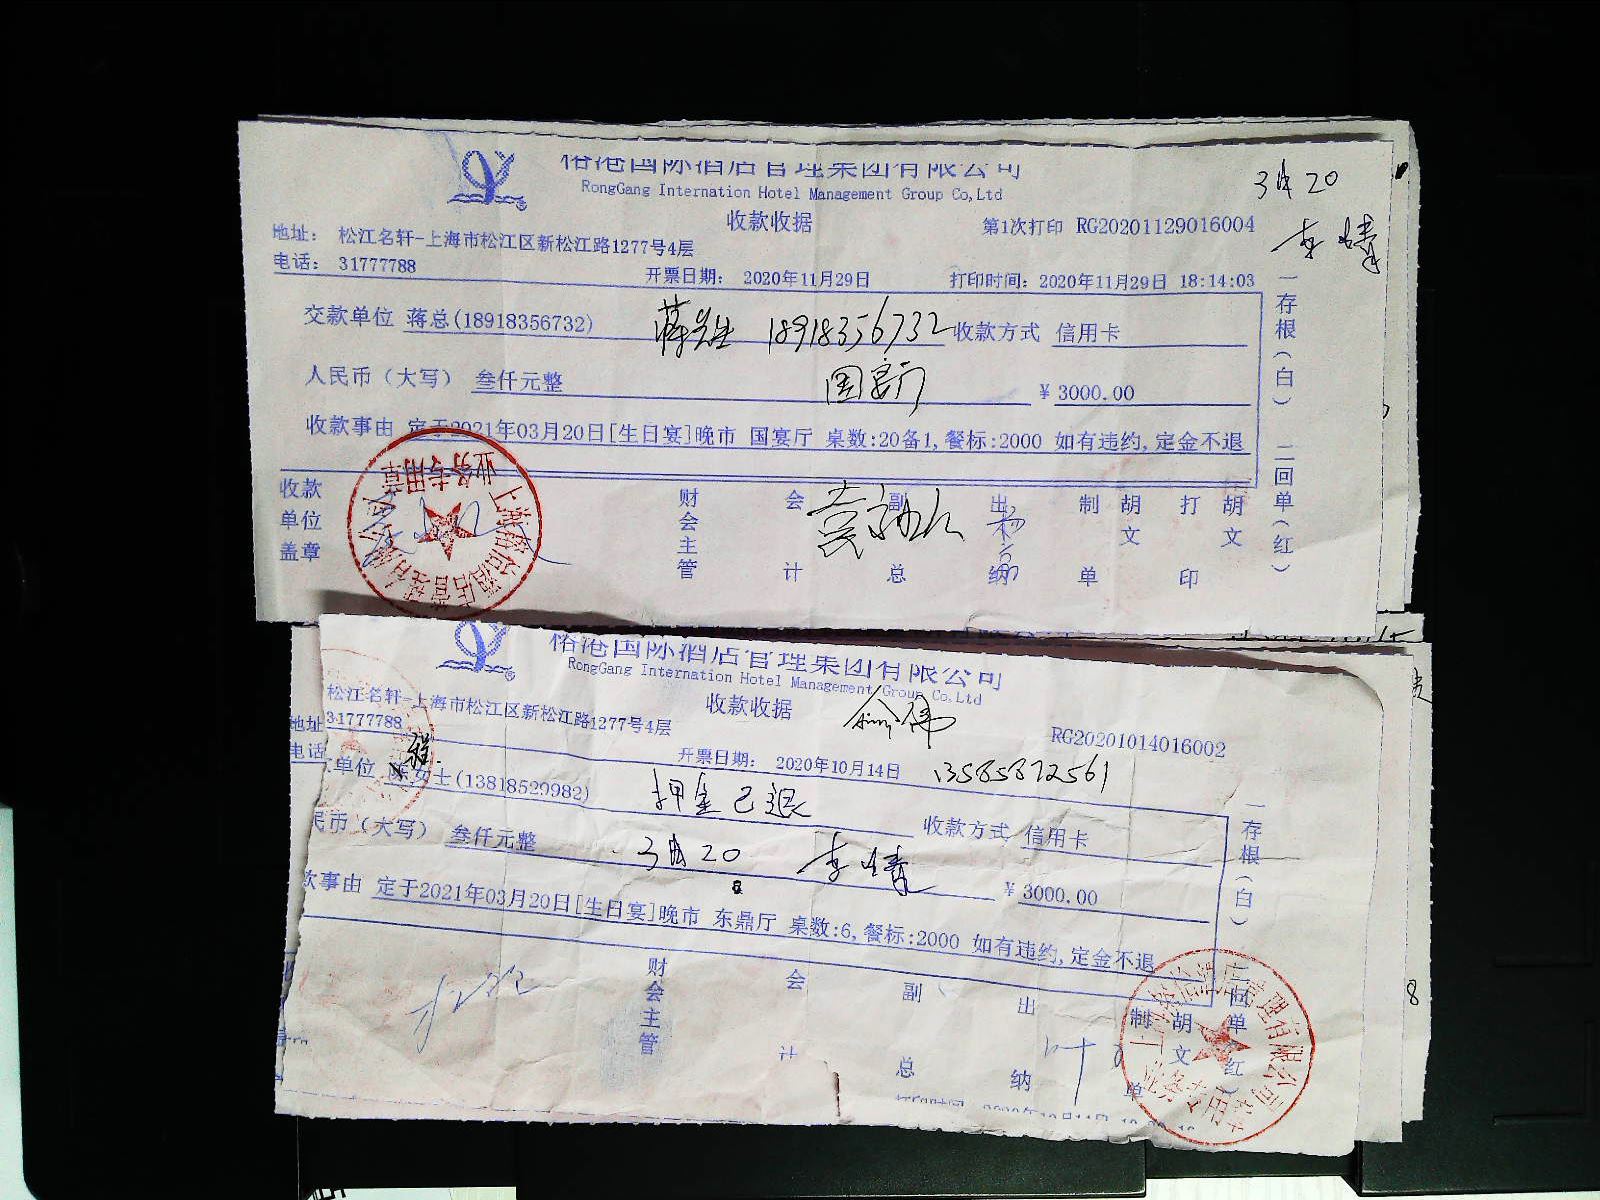 榕港国际酒店管理集团有限公司
RongGang Internation Hotel Management Group Co,Ltd
3月20
收款收据
第1次打印 RG20201129016004
李婧
地址： 松江名轩-上海市松江区新松江路1277号4层
电话： 31777788
开票日期： 2020年11月29日
打印时间：2020年11月29日 18:14:03
交款单位 蒋总(18918356732)
蒋先生 18918356732
收款方式 信用卡
人民币（大写） 叁仟元整
国宴厅
￥3000.00
收款事由 定于2021年03月20日[生日宴]晚市 国宴厅 桌数:20备1,餐标:2000 如有违约,定金不退
收款单位盖章
财会主管
会计
副总
出纳
制单
胡文
打印
胡文
一存根(白) 二回单(红)
业务专用章
榕港国际酒店管理集团有限公司
RongGang Internation Hotel Management Group Co,Ltd
收款收据
RG20201014016002
松江名轩-上海市松江区新松江路1277号4层
地址
31777788
电话
开票日期： 2020年10月14日
13585872561
单位 陈女士(13818529982)
程
押金已退
收款方式 信用卡
民币（大写） 叁仟元整
3月20 李婧
￥3000.00
事由 定于2021年03月20日[生日宴]晚市 东鼎厅 桌数:6,餐标:2000 如有违约,定金不退
财会主管
会计
副总
出纳
制单
胡文
一存根(白)
回单(红)
业务专用章
8